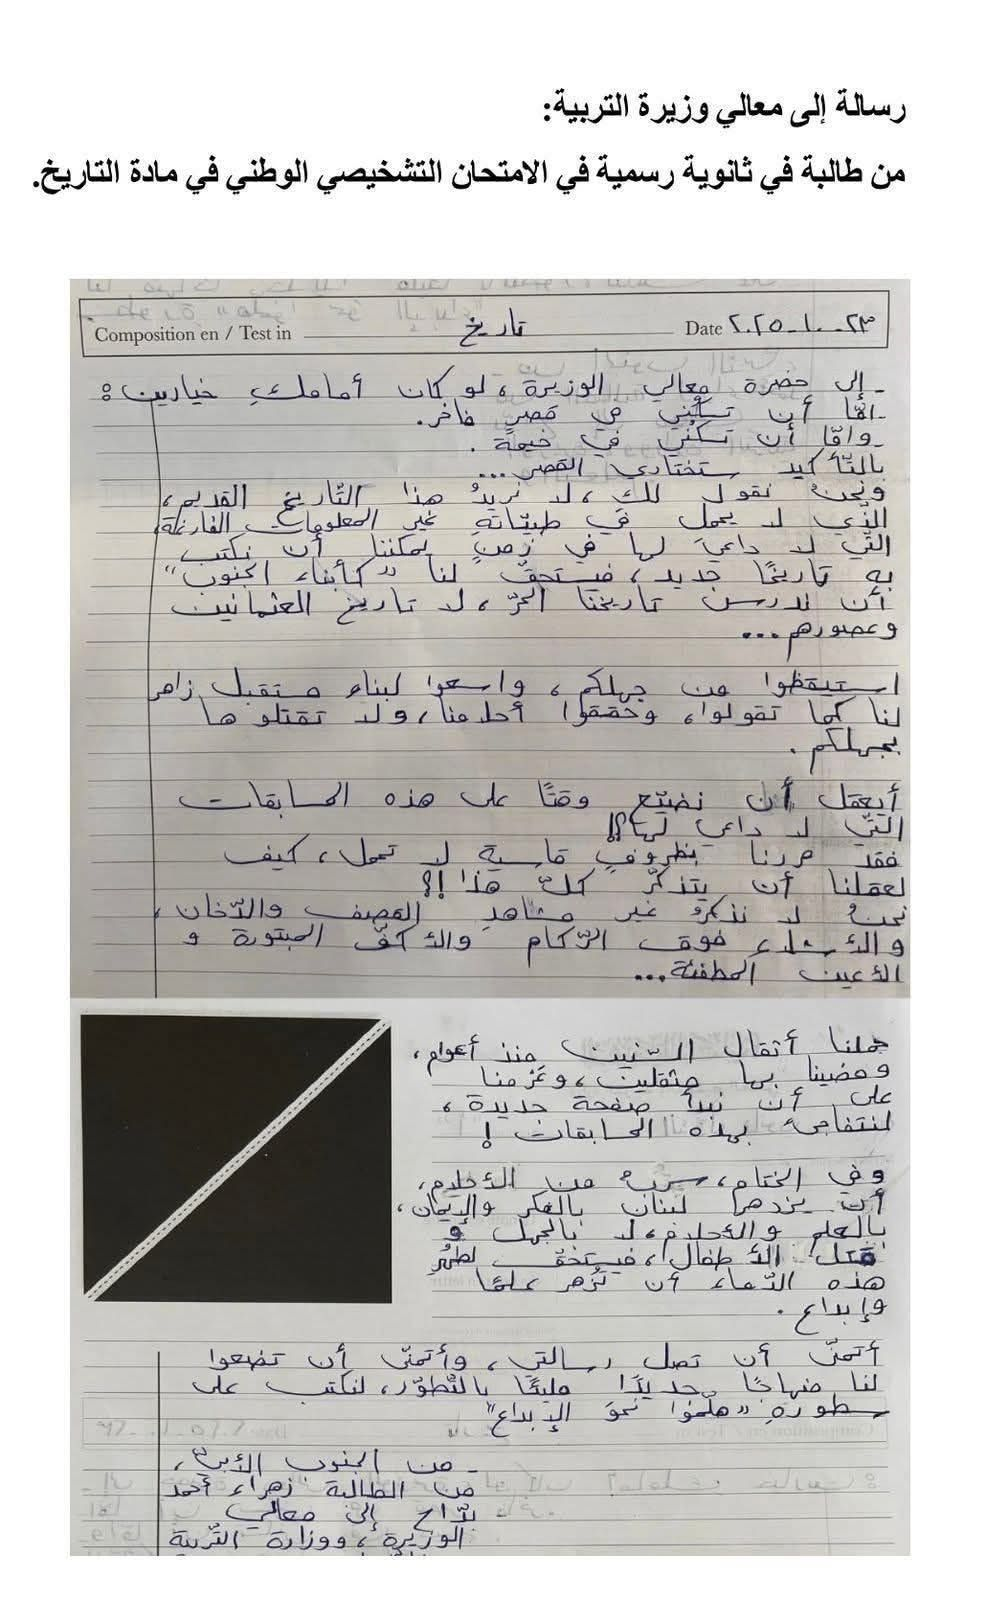 رسالة إلى معالي وزيرة التربية:
من طالبة في ثانوية رسمية في الامتحان التشخيصي الوطني في مادة التاريخ.
Composition en / Test in تاريخ Date ٢٠٢٥-١٠-٢٣
- إلى حضرة معالي الوزيرة، لو كان أمامكِ خيارين:
- امّا أن تسكُني في قصرٍ فاخر.
- وامّا أن تسكُني في خيمة.
بالتّأكيد ستختاري القصر...
ونحنُ نقول لكِ، لا نريدُ هذا التّاريخ القديم،
الّذي لا يحمل في طيّاتهِ غير المعلومات الفارغة،
التّي لا داعيَ لها في زمنٍ يمكننا أن نكتب
به تاريخًا جديد، فيستحقّ لنا "كأبناء الجنوب"
أن ندرس تاريخنا الحرّ، لا تاريخ العثمانيين
وعصورهم...
استيقظوا من جهلكم، واسعوا لبناء مستقبل زاهر
لنا كما تقولوا، وحققوا أحلامنا، ولا تقتلوها
بجهلكم.
أيعقل أن نضيّع وقتًا على هذه المسابقات
التّي لا داعي لها؟!!
فقد مررنا بظروفٍ قاسية لا تحمل، كيف
لعقلنا أن يتذكّر كلّ هذا!؟
نحنُ لا نذكرُ غير مشاهدِ القصف والدّخان،
والأشلاء فوق الرّكام والأكفّ المبتورة و
الأعين المطفئة...
حملنا أثقال السّنين منذ أعوام،
ومضينا بها مثقلين، وعَزمنا
على أن نبدأ صفحة جديدة،
لنتفاجئ بهذه المسابقات!
وفي الختام، سربٌ من الأحلام،
أن يزدهر لبنان بالفكر والإيمان،
بالعلم والأحلام، لا بالجهل و
قتل الأطفال، فيستحقّ لطُهرِ
هذه الدّماء أن تُزهر علمًا
وإبداع.
أتمنّى أن تصل رسالتي، وأتمنّى أن تضعوا
لنا منهاجًا جديدًا مليئًا بالتّطوّر، لنكتب على
سطورهِ "هلّموا نحوَ الإبداع"
- من الجنوب الأبيّ،
من الطالبة زهراء أحمد
بدّاح إلى معالي
الوزيرة، ووزارة التّربية